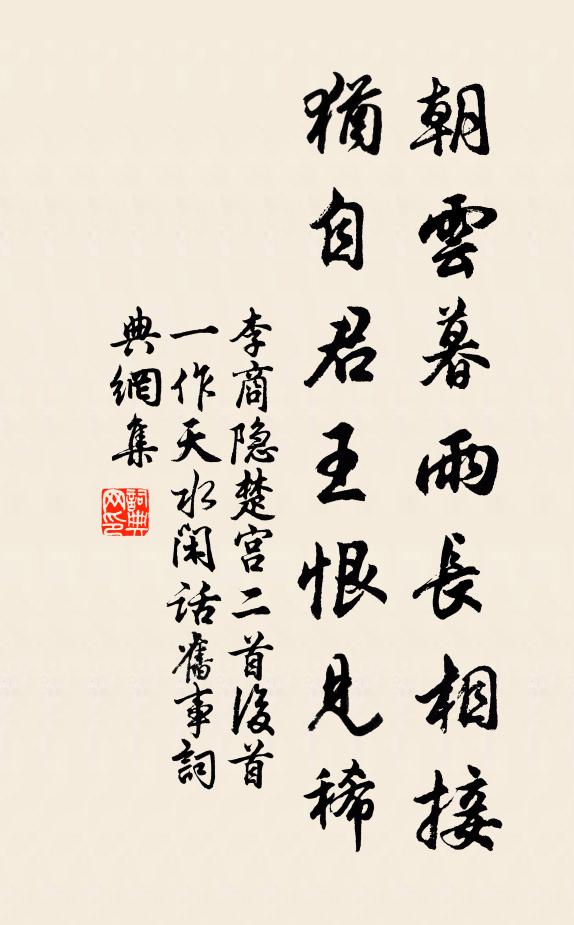 朝雲暮雨長相接
猶自君王恨見稀
李商隐楚宫二首後首
一作天水闲话舊事詞
典網集
詞典
网印